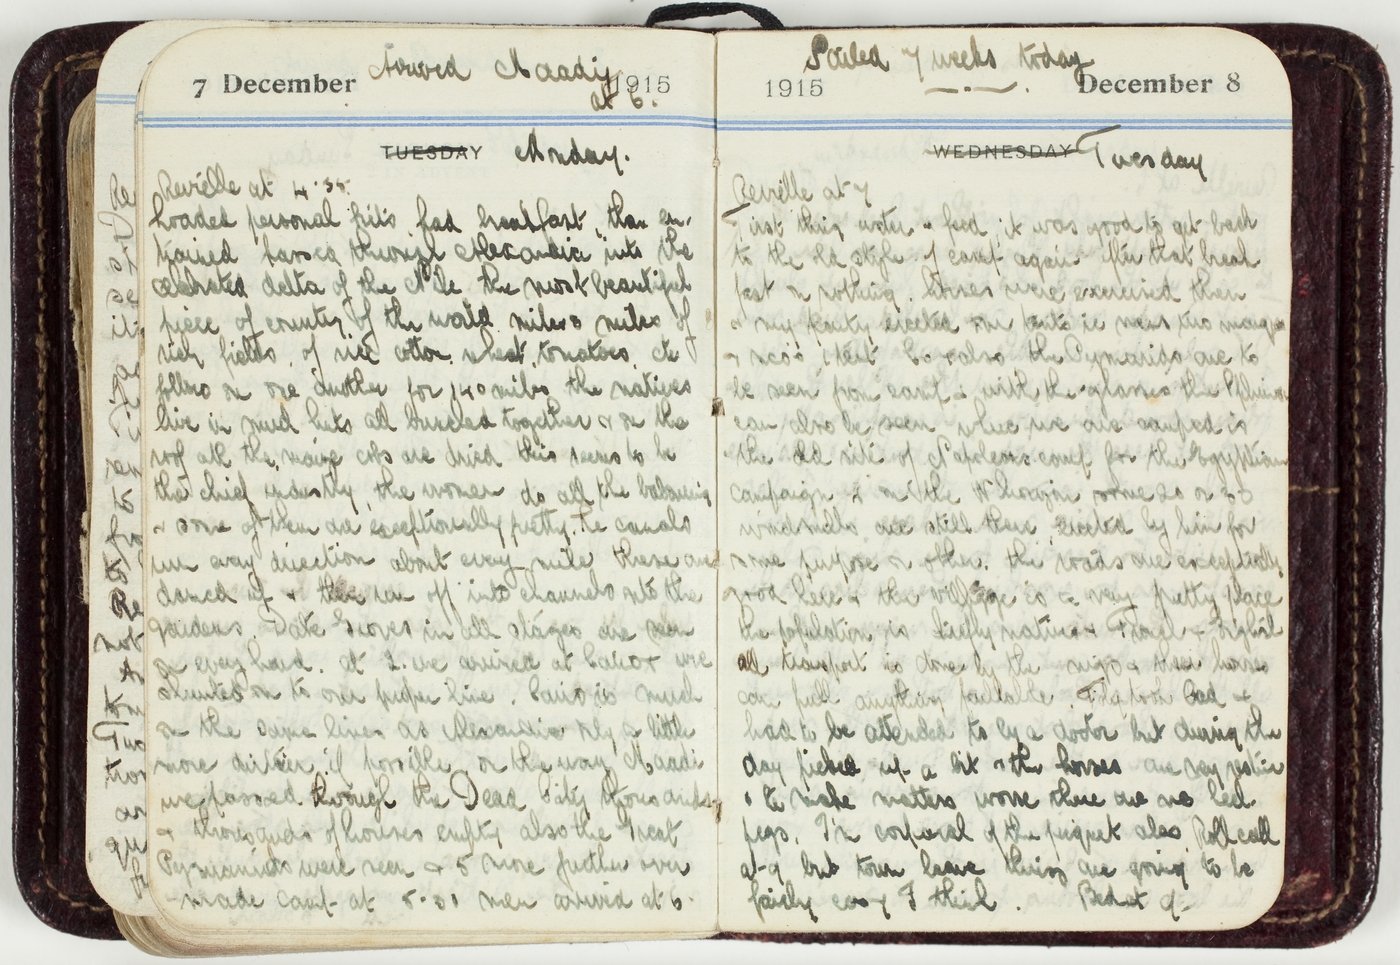 Arrived Maadi
7 December 1915
at 6.
TUESDAY Monday.
Reveille at 4.30.
Loaded personal kits, had breakfast, then en-
trained passed through Alexandria into the
celebrated delta of the Nile the most beautiful
piece of country of the world miles & miles of
rich fields, of rice cotton, wheat, tomatoes, etc
follow on one another for 140 miles the natives
live in mud huts all bundled together & on the
roof all the maize cobs are dried this seems to be
the chief industry, the women do all the
& some of them are exceptionally pretty. The canals
run every direction about every mile these are
up & then run off into channels into the
gardens. Date Groves in all stages are seen
on every hand. at 2. we arrived at Cairo & we
shunted on to our proper line. Cairo is much
on the same lines as Alexandria only a little
more dirtier if possible, on the way Maadi
we passed through the Dead City thousands
& thousands of houses empty also the Great
Pyramids were seen & 5 more further over
made camp at 5.30 men arrived at 6.
Sailed 7 weeks today
1915 December 8
WEDNESDAY Tuesday
Reveille at 7
First thing water & feed, it was good to get back
to the old style of camp again after that break
fast on nothing. Horses were exercised then
& my party erected our tents ie mens two
& 1 tent. Go & also the Pyramids are to
be seen from camp & with the glasses the Sphinx
can also be seen where we are camped is
the old site of Napoleons camp for the Egyptian
campaign & on the some 20 or 30
windmills are still there, erected by him for
some purpose or other. the roads are exceptionally
good here & the village is a very pretty place
the population is chiefly natives French & English
all transport is done by the & their horses
can pull anything pullable. took bad &
had to be attended to by a doctor but during the
day picked up a bit & the horses are very restive
& to make matters worse there are no heel
pegs. I'm corporal of the picquet also Roll call
at 9 but town leave things are going to be
fairly easy I think. Bed at 9-